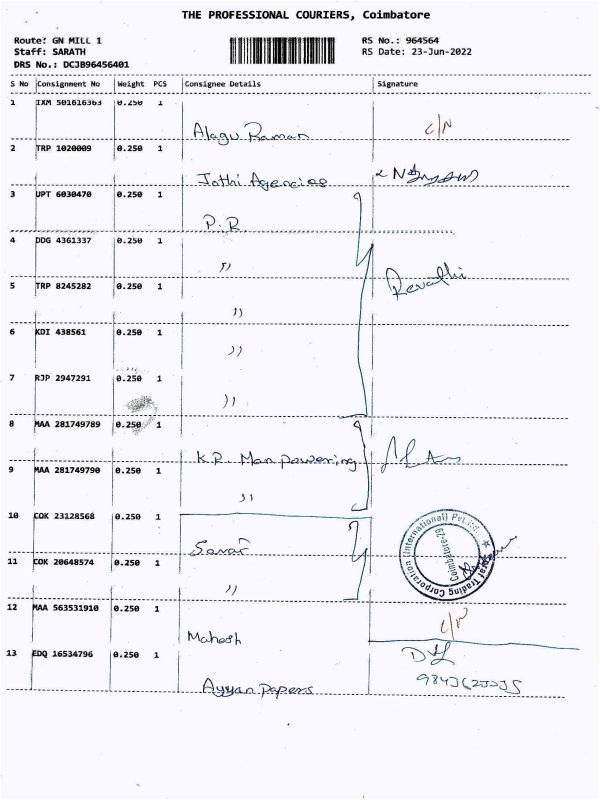 THE PROFESSIONAL COURIERS, Coimbatore
Route: GN MILL 1 RS No.: 964564
Staff: SARATH RS Date: 23-Jun-2022
DRS No.: DCJB96456401
S No Consignment No Weight PCS Consignee Details Signature
1 IXM 501616363 0.250 1
Alagu Raman C/N
2 TRP 1020009 0.250 1
Jothi Agencies
3 UPT 6030470 0.250 1
P.R
4 DDG 4361337 0.250 1
"
Revathi
5 TRP 8245282 0.250 1
"
6 KDI 438561 0.250 1
"
7 RJP 2947291 0.250 1
"
8 MAA 281749789 0.250 1
K.P Man powering
9 MAA 281749790 0.250 1
"
10 COK 23128568 0.250 1
Saraf
Saraf Trading Corporation (International) Pvt Ltd.
Coimbatore-29
11 COK 20648574 0.250 1
"
12 MAA 563531910 0.250 1
Mahesh C/N
13 EDQ 16534796 0.250 1
Ayyan Papers